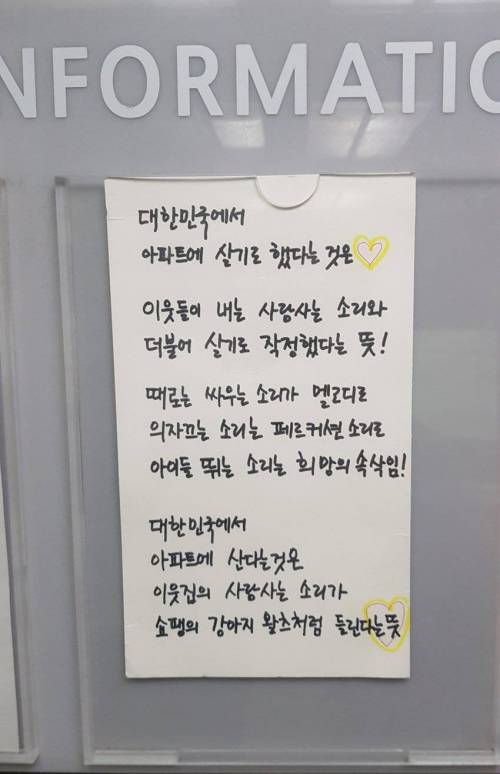 INFORMATIO
대한민국에서
아파트에 살기로 했다는 것은
이웃들이 내는 사람사는 소리와
더불어 살기로 작정했다는 뜻!
때로는 싸우는 소리가 멜로디로
의자끄는 소리는 페르커션 소리로
아이들 뛰는 소리는 희망의 속삭임!
대한민국에서
아파트에 산다는것은
이웃집의 사람사는 소리가
쇼팽의 강아지 왈츠처럼 들린다는 뜻